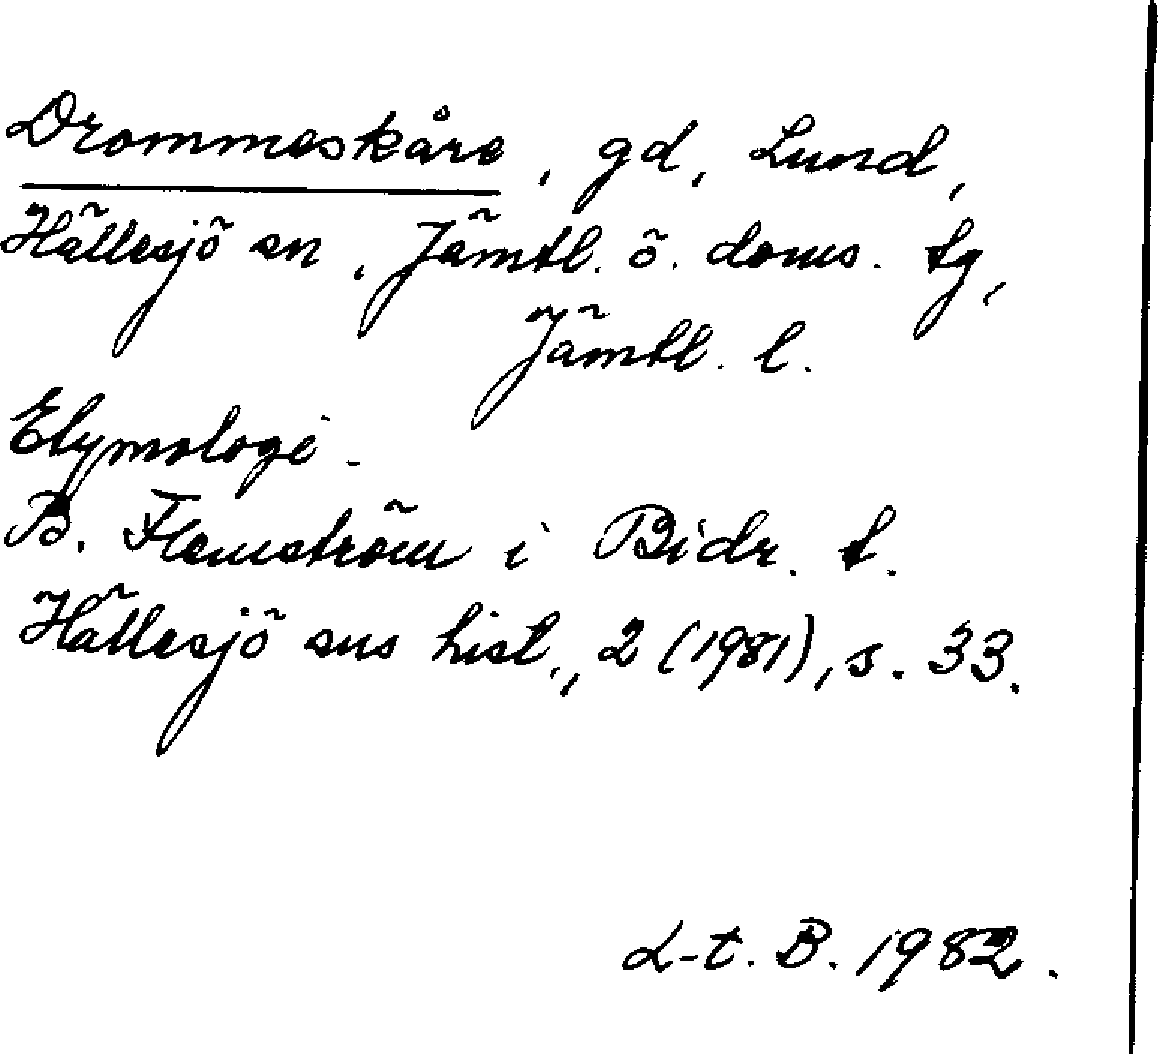 Drommeskåre, gd, Lund,
Hällesjö sn, Jämtl. ö. doms. tg,
Jämtl. l.
Etymologi.
B. Flemström i Bidr. t.
Hällesjö sns hist., 2 (1981), s. 33.
L-t. B. 1982.